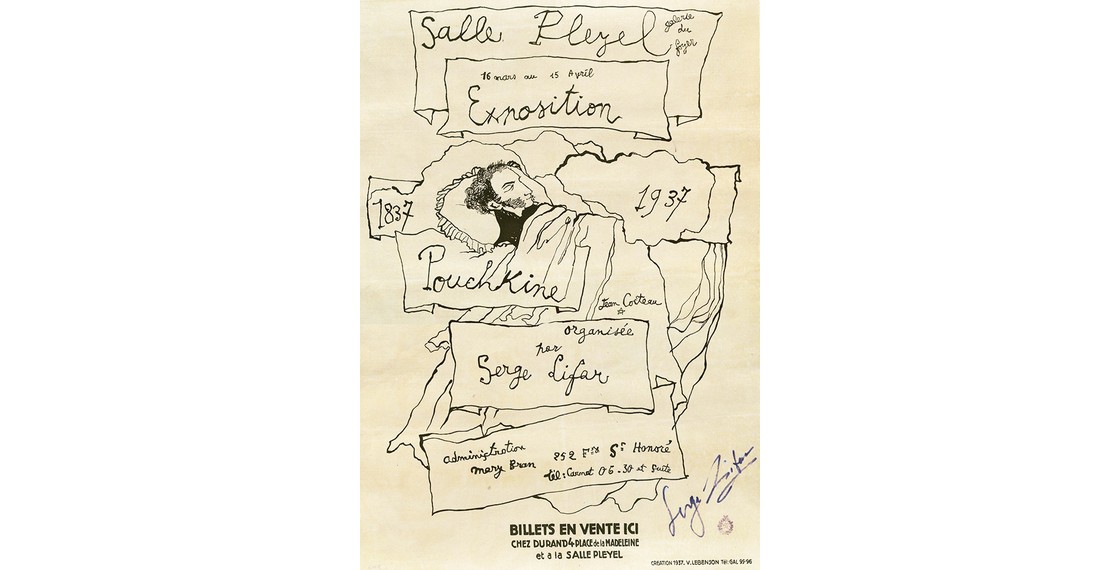 Salle Pleyel
galerie
du
foyer
16 mars au 15 Avril
Exposition
1837
1937
Pouchkine
Jean Cocteau
organisée
par
Serge Lifar
administration
Mary Bran
252 Fbg St Honoré
tél: Carnot 06-30 et suite
Serge Lifar
BILLETS EN VENTE ICI
CHEZ DURAND 4 PLACE de la MADELEINE
et a la SALLE PLEYEL
CREATION 1937. V. LEBENSON Tél: GAL 99-96